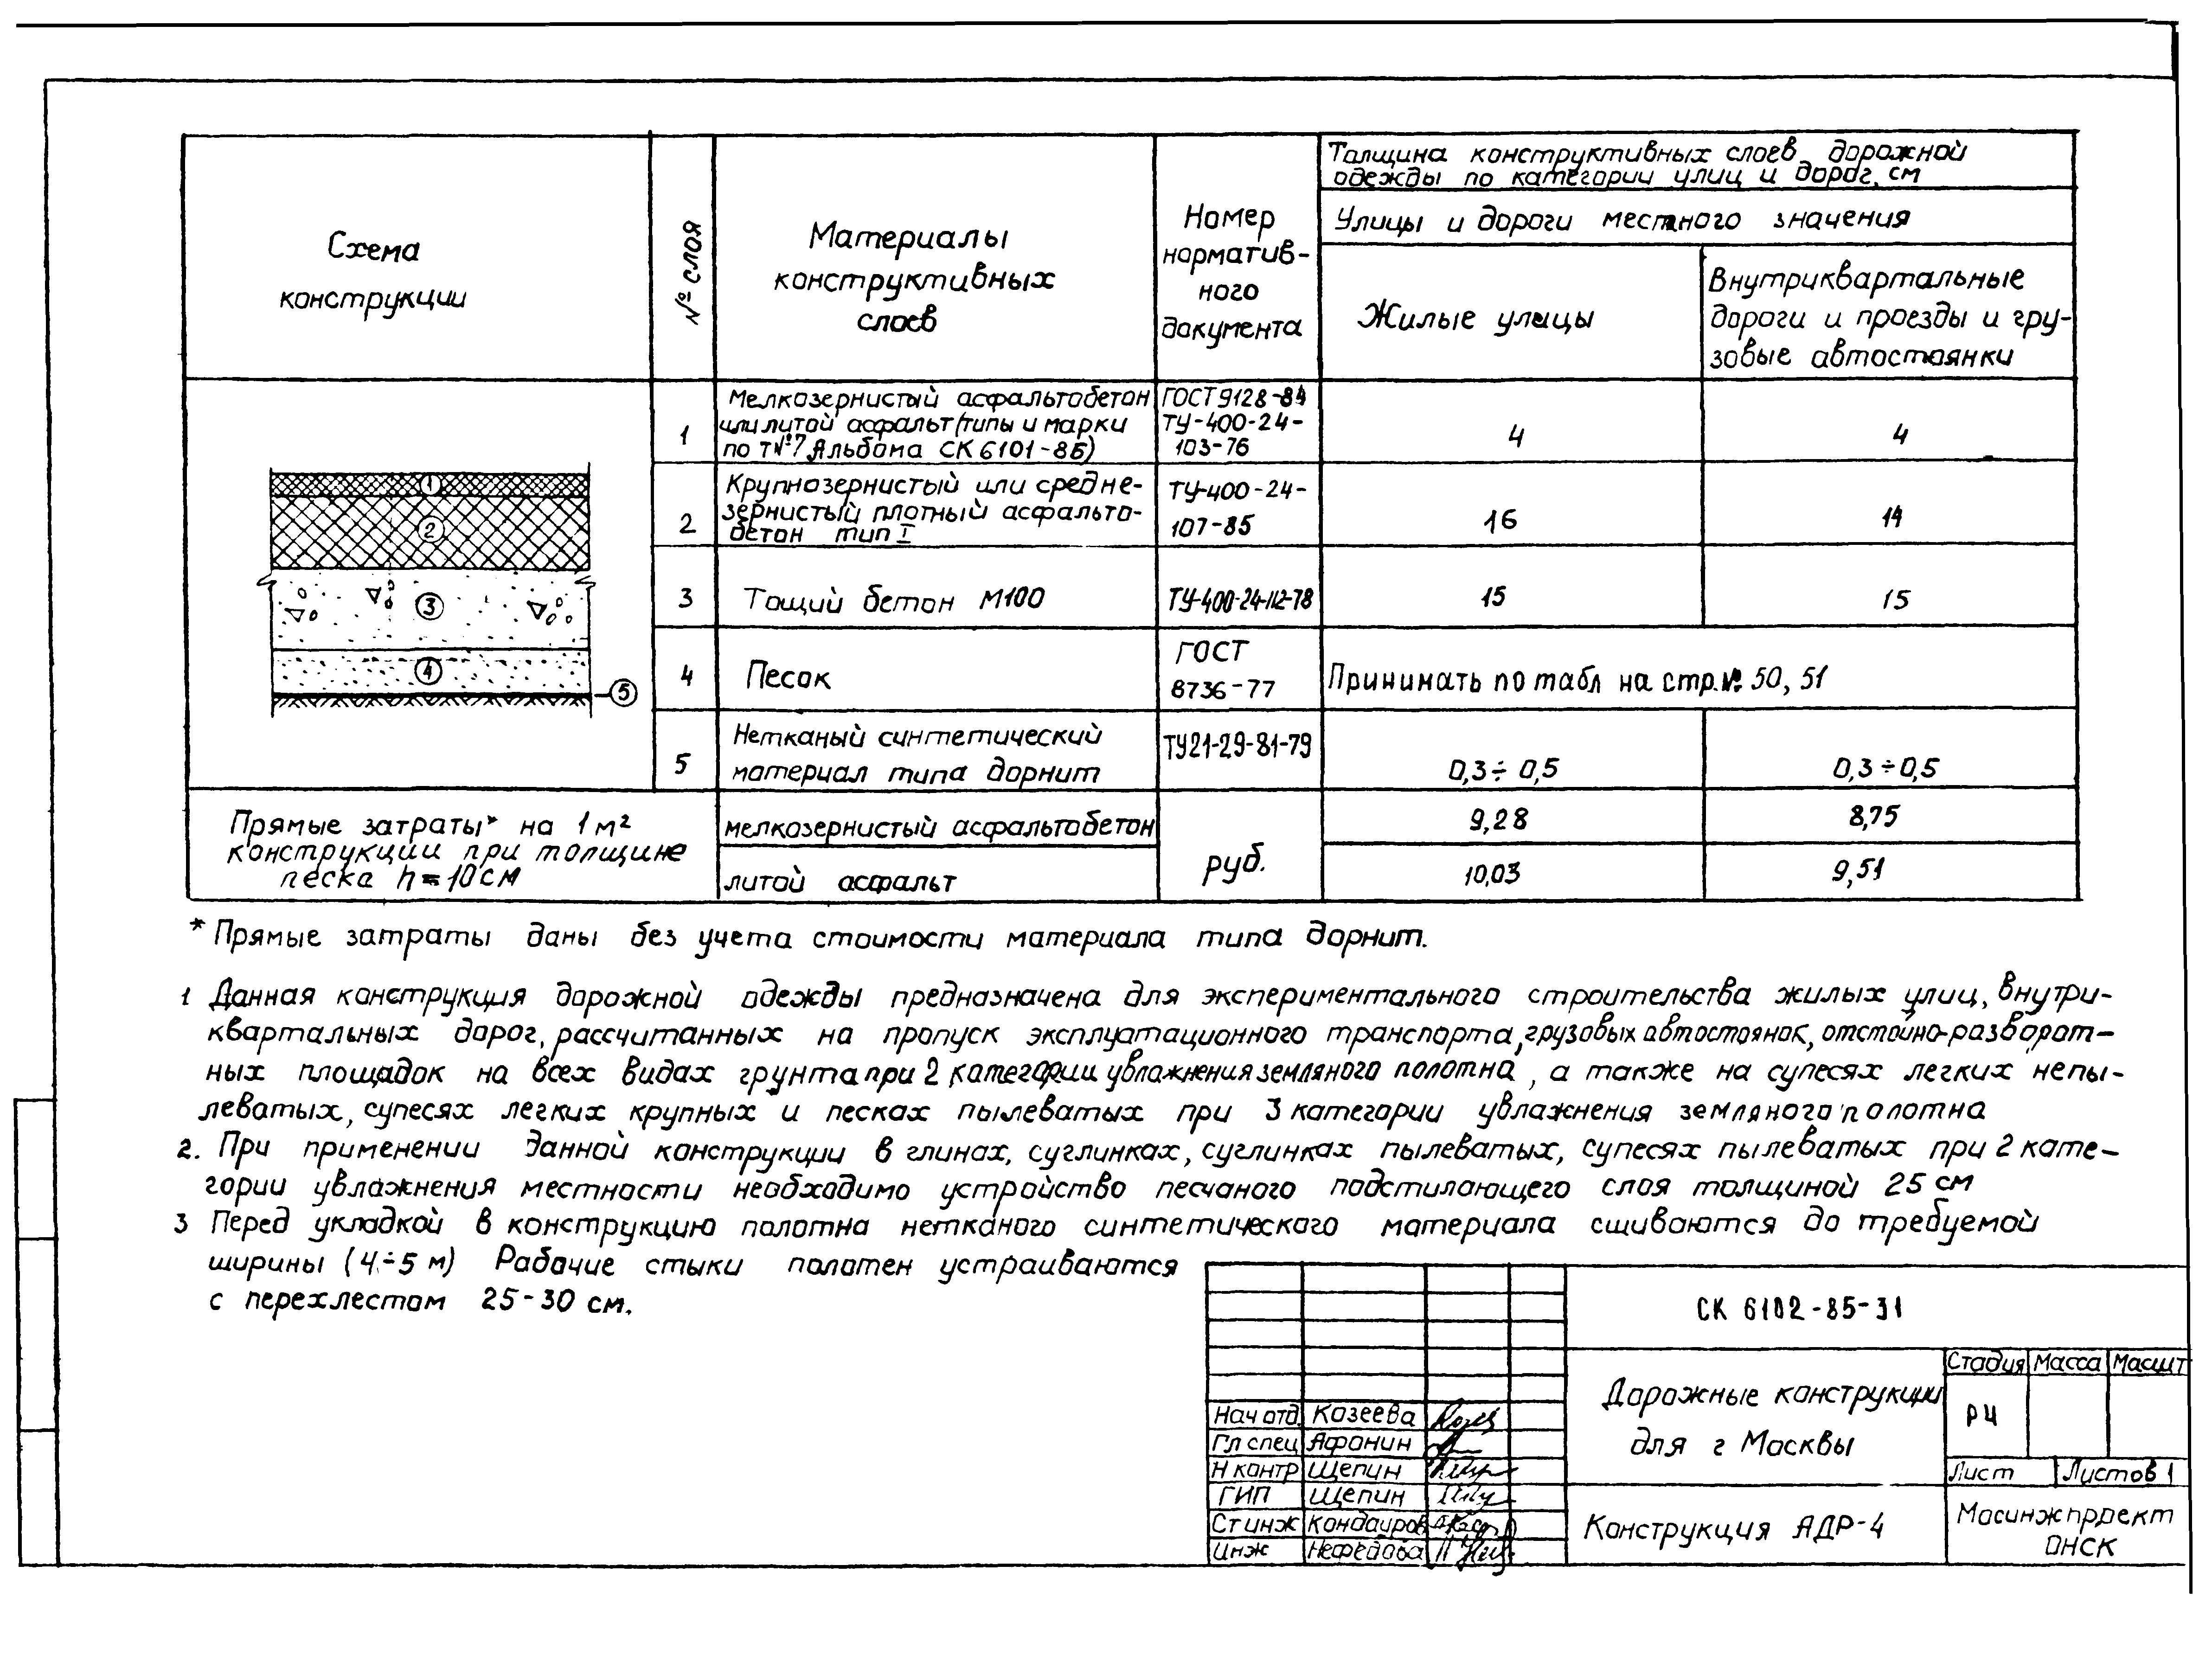 Схема
конструкции
№ слоя
Материалы
конструктивных
слоев
Номер
норматив-
ного
документа
Толщина конструктивных слоев дорожной
одежды по категории улиц и дорог, см
Улицы и дороги местного значения
Жилые улицы
Внутриквартальные
дороги и проезды и гру-
зовые автостоянки
1
2
3
4
5
1
Мелкозернистый асфальтобетон
или литой асфальт (типы и марки
по т №7 Альбома СК 6101-85)
ГОСТ 9128-84
ТУ-400-24-
103-76
4
4
2
Крупнозернистый или средне-
зернистый плотный асфальто-
бетон тип I
ТУ-400-24-
107-85
16
14
3
Тощий бетон М100
ТУ-400-24-112-78
15
15
4
Песок
ГОСТ
8736-77
Принимать по табл на стр. № 50, 51
5
Нетканый синтетический
материал типа дорнит
ТУ21-29-81-79
0,3÷0,5
0,3÷0,5
Прямые затраты* на 1 м²
конструкции при толщине
песка h = 10 см
мелкозернистый асфальтобетон
литой асфальт
руб.
9,28
8,75
10,03
9,51
* Прямые затраты даны без учета стоимости материала типа дорнит.
1 Данная конструкция дорожной одежды предназначена для экспериментального строительства жилых улиц, внутри-
квартальных дорог, рассчитанных на пропуск эксплуатационного транспорта, грузовых автостоянок, отстойно-разворот-
ных площадок на всех видах грунта при 2 категории увлажнения земляного полотна, а также на супесях легких непы-
леватых, супесях легких крупных и песках пылеватых при 3 категории увлажнения земляного полотна
2. При применении данной конструкции в глинах, суглинках, суглинках пылеватых, супесях пылеватых при 2 кате-
гории увлажнения местности необходимо устройство песчаного подстилающего слоя толщиной 25 см
3 Перед укладкой в конструкцию полотна нетканого синтетического материала сшиваются до требуемой
ширины (4÷5 м) Рабочие стыки полотен устраиваются
с перехлестом 25-30 см.
СК 6102-85-31
Дорожные конструкции
для г Москвы
Стадия Масса Масшт
РЧ
Лист Листов 1
Нач отд. Козеева
Гл спец Афонин
Н контр Щепин
ГИП Щепин
Ст инж Кондаиров
Инж Нефедова
Конструкция АДР-4
Мосинжпроект
ОНСК